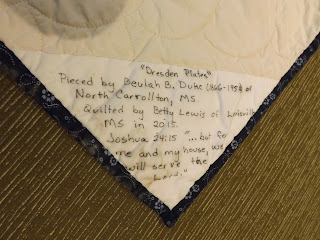 "Dresden Plates"
Pieced by Beulah B. Duke (1866-1954) of
North Carrollton, MS
Quilted by Betty Lewis of Louisville
MS in 2015.
Joshua 24:15 "...but for
me and my house, we
will serve the
Lord."